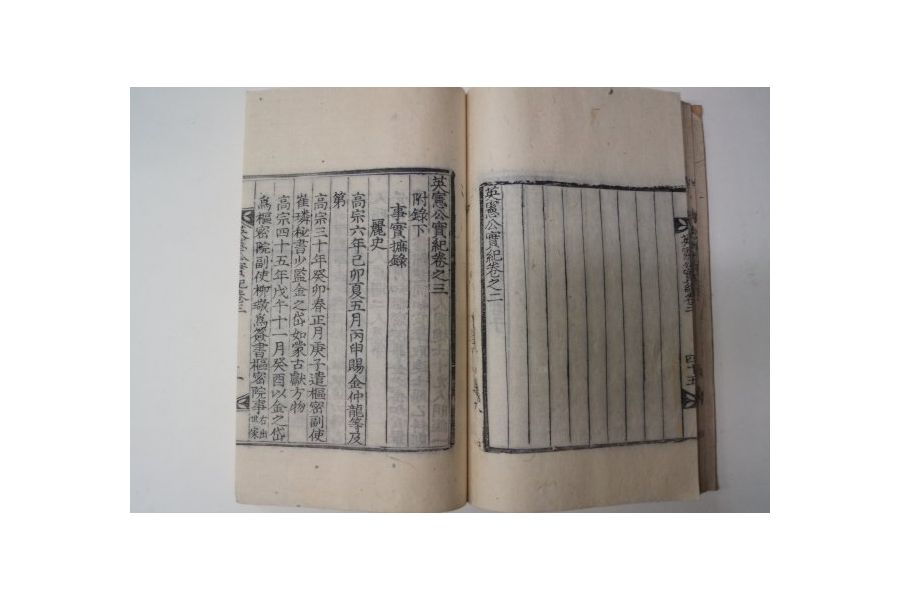 英憲公實紀卷之二
四十五
英憲公實紀卷之三
附錄下
事實摭錄
麗史
高宗六年己卯夏五月丙申賜金仲龍等及
第
高宗三十年癸卯春正月庚子遣樞密副使
崔璘秘書少監金之岱如蒙古獻方物
高宗四十五年戊午十一月癸酉以金之岱
爲樞密院副使柳璥爲簽書樞密院事右出世家